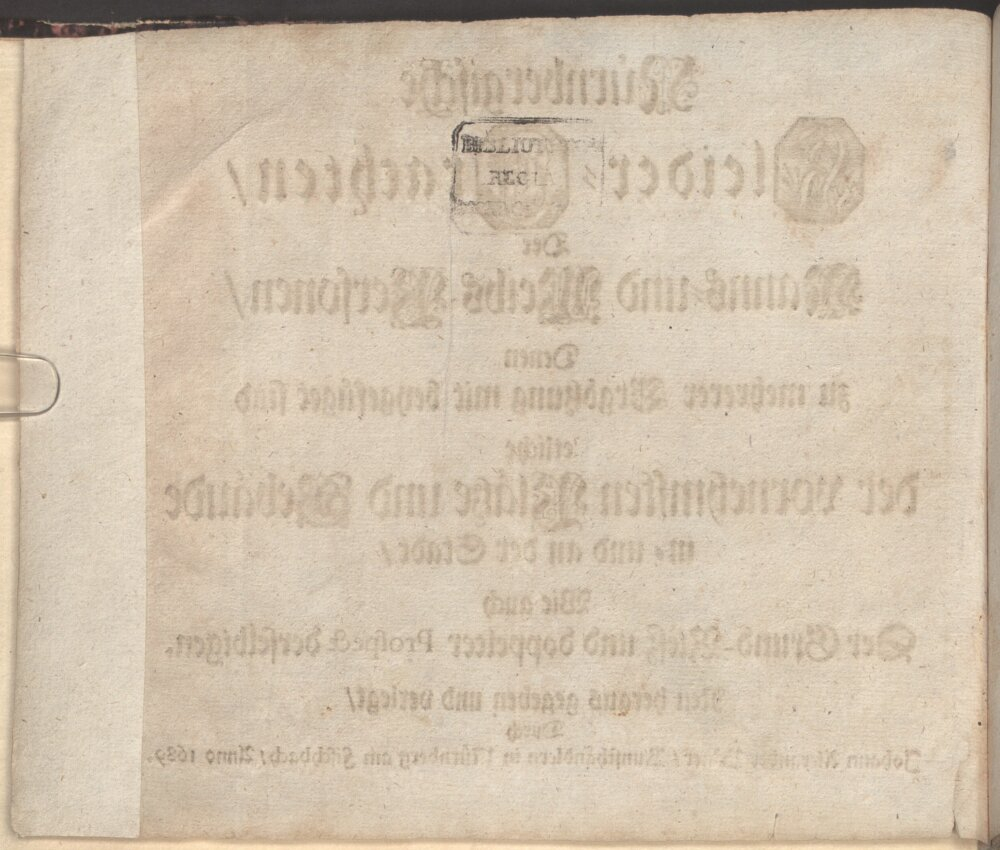 Nürnbergische
Kleider-Trachten/
BIBLIOTHECA
REGIA
Der
Manns und Weibs-Personen/
Denen
zu mehrerer Ergötzung mit beygefüget sind
etliche
der vornehmsten Plätze und Gebäude
in- und an der Stadt/
Wie auch
Der Grund-Riess und doppelter Prospect derselbigen.
Neu heraus gegeben und verlegt/
Durch
Johann Alexander Böner/ Kunsthändlern in Nürnberg am Fischbach/ Anno 1689.